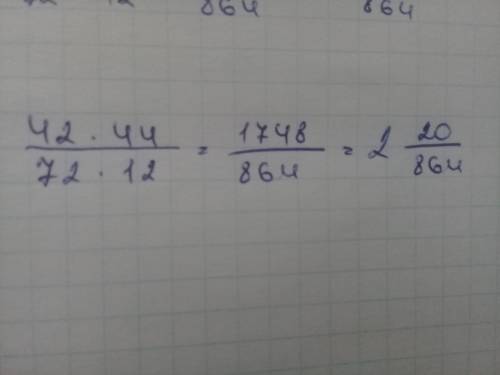 12 864 864
42 · 44 / 72 · 12 = 1748 / 864 = 2 20/864